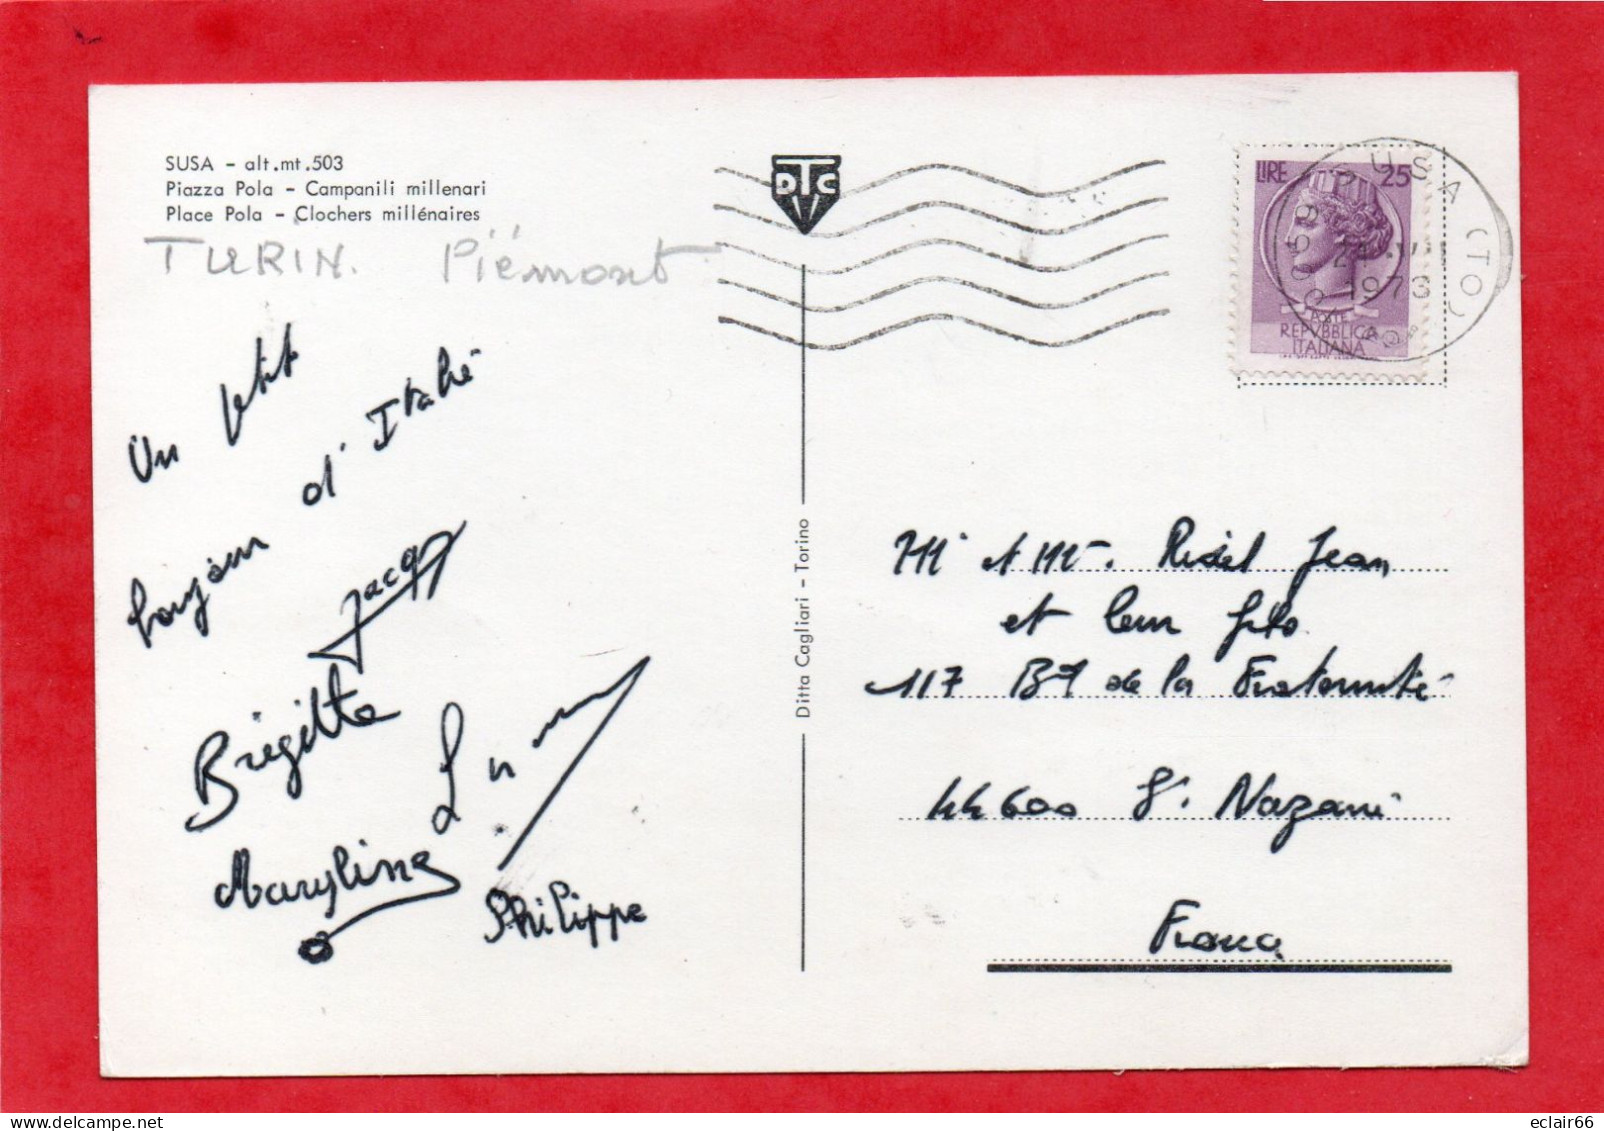 SUSA - alt.mt.503
Piazza Pola - Campanili millenari
Place Pola - Clochers millénaires
TURIN. Piémont
Un petit
bonjour d'Italie
Jacq
Brigitte
Maryline
Philippe
DTC
Ditta Cagliari - Torino
LIRE 25
POSTE
REPVBBLICA
ITALIANA
10059 SUSA (TO)
1973
Mr et Mme. Jean
et leur fils
117 Bd de la Fraternité
44600 St. Nazaire
France
eclair66